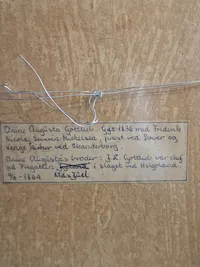 Oline Augusta Gottlieb. Gift 1836 med Frederik
Nicolai Severin Mikkelsen, præst ved Dover og
Venge kirker ved Skanderborg.
Oline Augustas broder: F.L. Gottlieb var chef
på fregatten i slaget ved Helgoland
9/5-1864